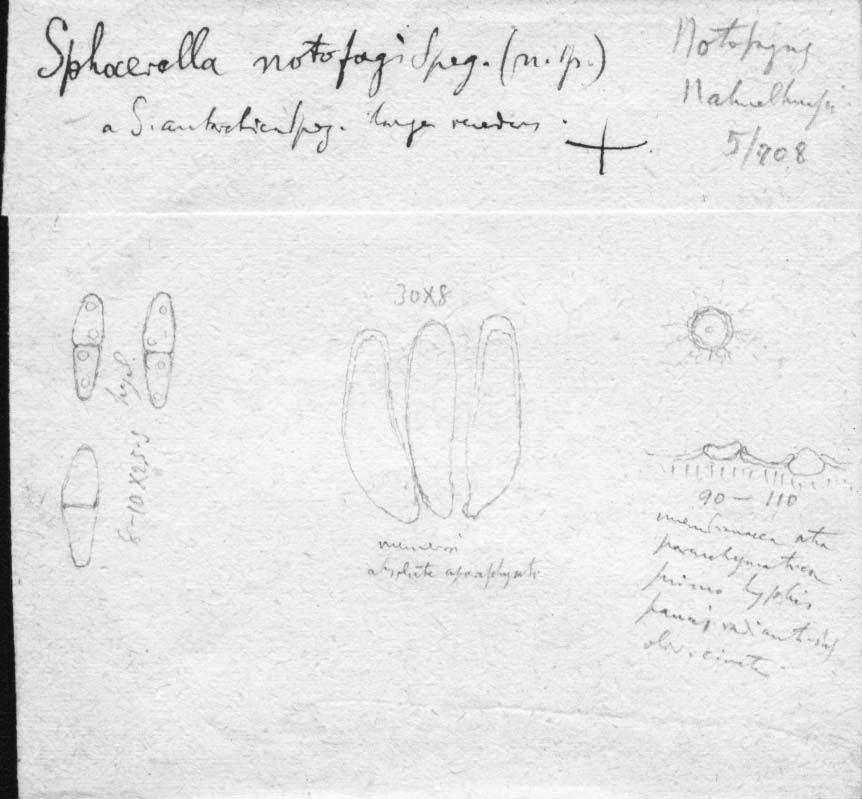 Sphaerella notofagi Speg. (n. sp.)
a S. antarctica Speg. longe recedens.
Notofagus
Nahuelhuapi
5/908
30X8
hyal.
8-10 X 2,5-3
numerosi
absolute aparaphysati
90 - 110
membranacea atra
parenchymatica
primo hyphis
paucis radiantibus
oliv. cincta